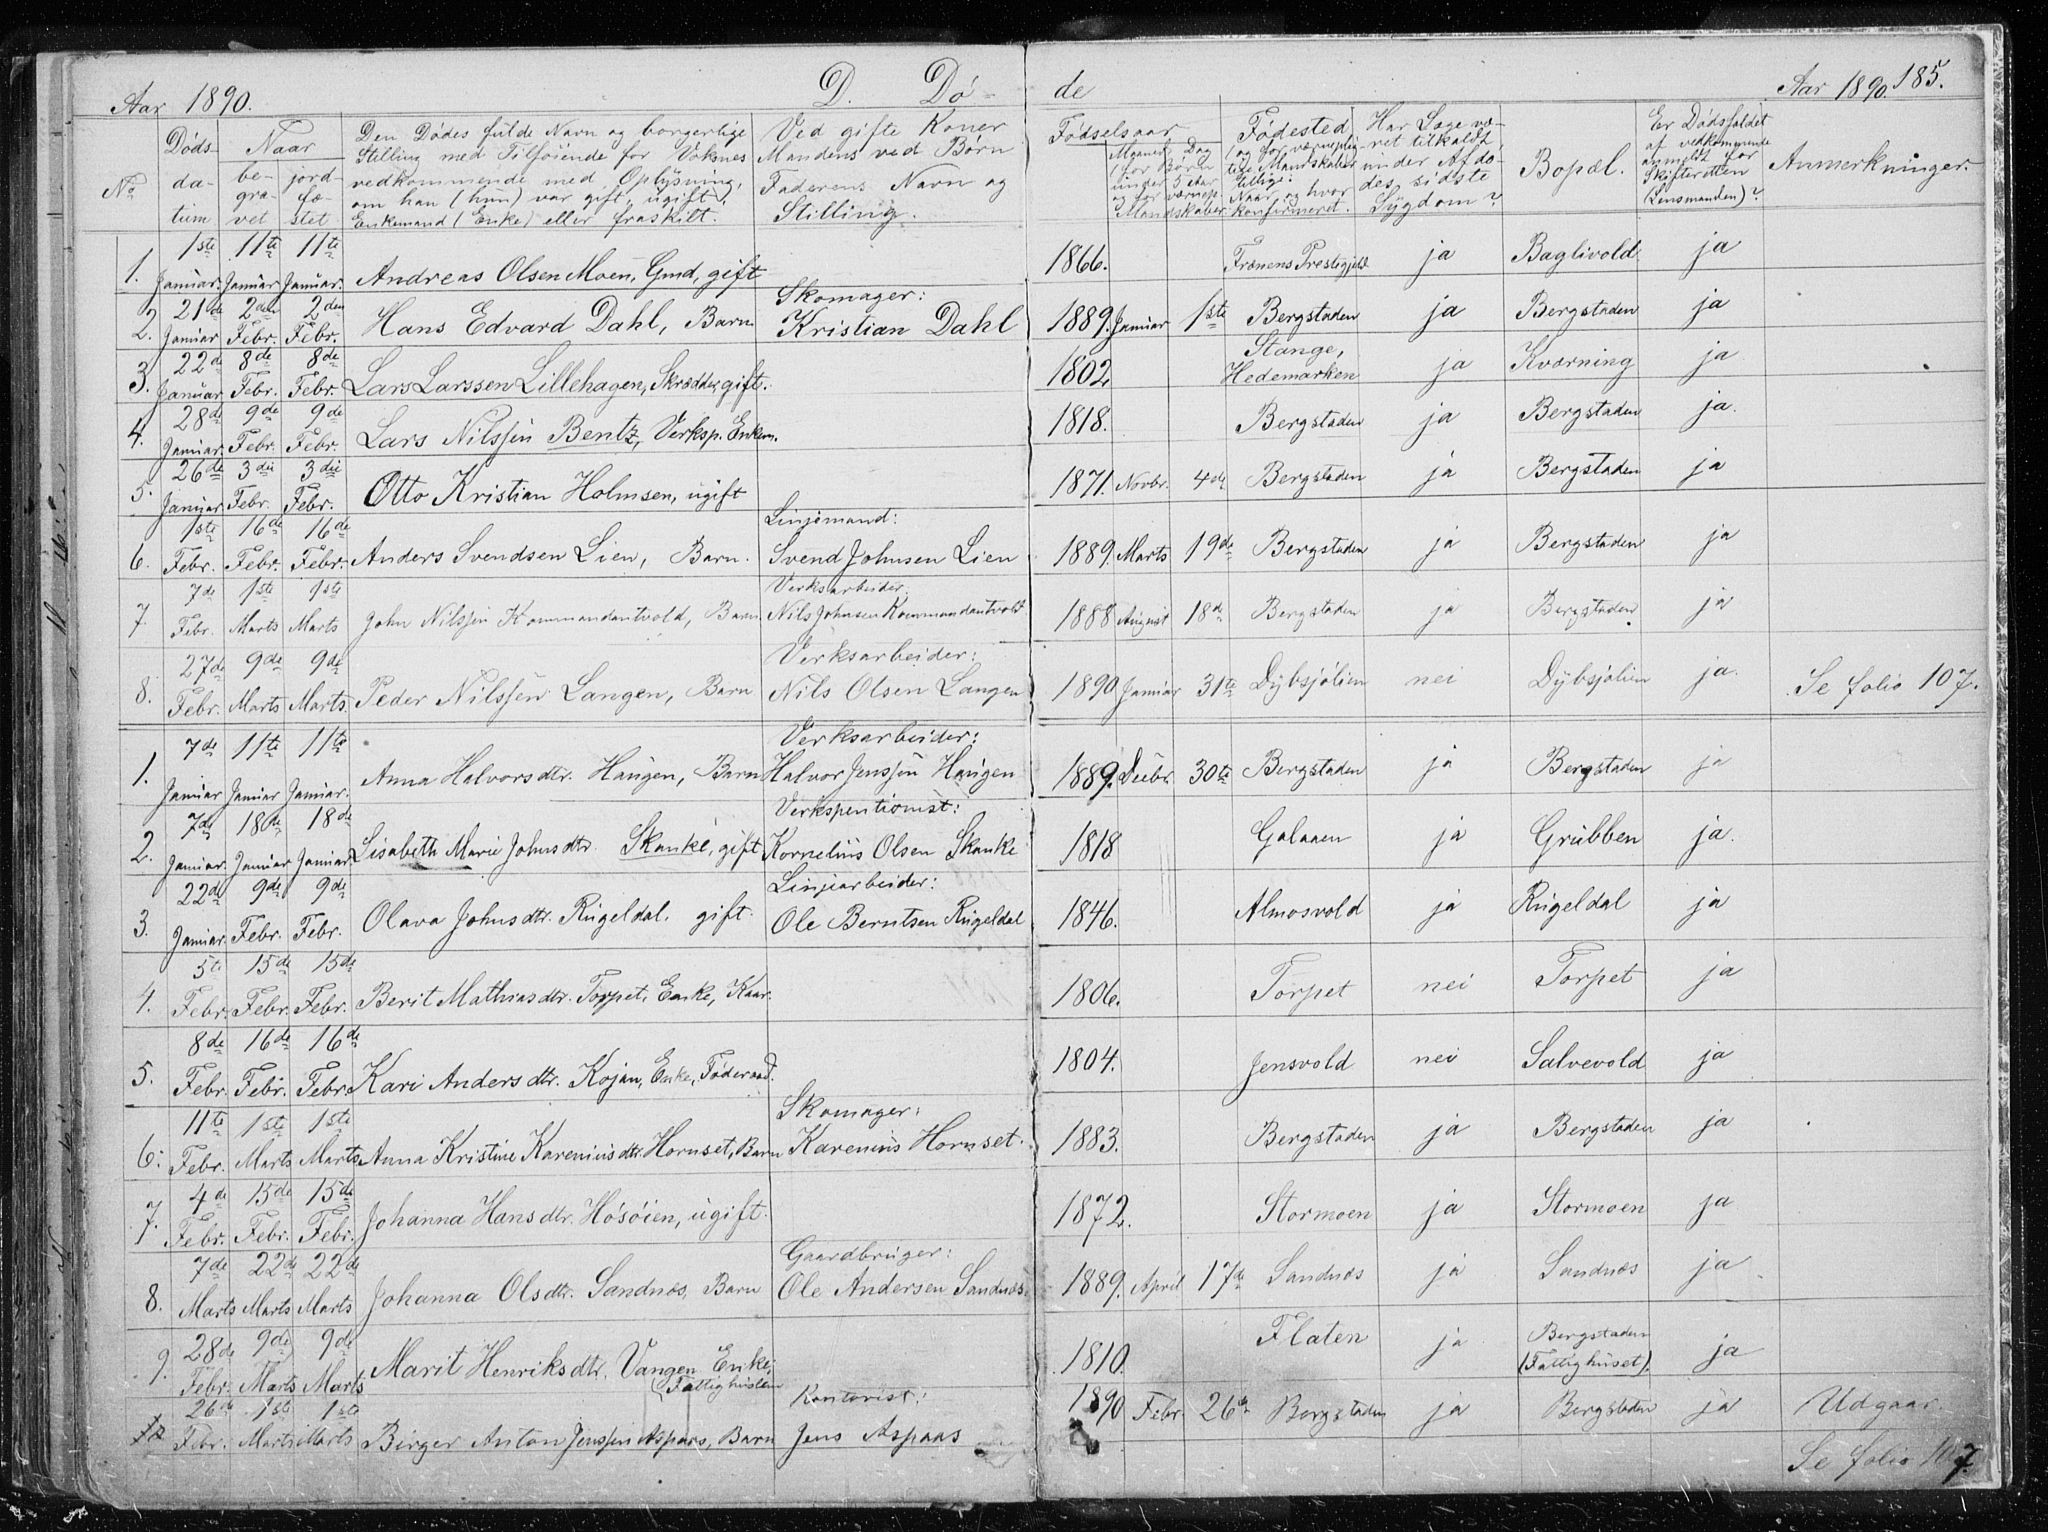 Aar 1890. D. Dø- de Aar 1890. 185.
No Døds-datum Naar begravet jordfæstet Den Dødes fulde Navn og borgerlige Stilling med Tilføiende for Voksnes vedkommende med Oplysning, om han (hun) var gift, ugift, Enkemand (Enke) eller fraskilt. Ved gifte Koner Mandens ved Børn Faderens Navn og Stilling. Fødselsaar Maaned, Dag (for Børn under 5 Aar og for værnepl. Mandskaber Fødested (og for værneplig- tige Mandskaber tillige: Naar og hvor konfirmeret. Har Læge væ- ret tilkaldt, under Afdø- des sidste Sygdom? Bopæl. Er Dødsfaldet af vedkommende anmeldt for Skifteretten (Lensmanden)? Anmerkninger.
1. 1ste Januar. 11te Januar 11te Januar. Andreas Olsen Moen, Gmd, gift 1866. Fronens Prestegjeld ja Baglivold ja
2. 21de Januar 2den Febr. 2den Febr. Hans Edvard Dahl, Barn Skomager: Kristian Dahl 1889. Januar 1ste Bergstaden ja Bergstaden ja
3. 22de Januar 8de Febr. 8de Febr. Lars Larssen Lillehagen, Skrædder, gift. 1802. Stange, Hedemarken ja Kværning ja
4. 28de Januar. 9de Febr. 9de Febr. Lars Nilssen Bentz, Verksp. Enkem. 1818. Bergstaden ja Bergstaden ja.
5. 26de Januar 3die Febr. 3die Febr. Otto Kristian Holmsen, ugift 1871. Novbr. 4de Bergstaden ja Bergstaden ja
6. 1ste Febr. 16de Febr. 16de Febr. Anders Svendsen Lien, Barn. Linjemand: Svend Johnsen Lien 1889. Marts 19de Bergstaden ja Bergstaden ja
7. 7de Febr. 1ste Marts 1ste Marts John Nilssen Kommandantvold, Barn Verksarbeider. Nils Johnsen Kommandantvold 1888 August 18de Bergstaden ja Bergstaden ja
8. 27de Febr. 9de Marts 9de Marts. Peder Nilssen Langen, Barn Verksarbeider: Nils Olsen Langen 1890 Januar 31te Dybsjølien nei Dybsjølien ja. Se folio 107.
1. 7de Januar 11te Januar 11te Januar. Anna Halvorsdtr. Haugen, Barn Verksarbeider: Halvor Jenssen Haugen 1889. Decbr. 30te Bergstaden ja Bergstaden ja
2. 7de Januar 18de Januar 18de Januar. Lisabeth Marie Johnsdtr. Skanke, gift Verkspentionist: Kornelius Olsen Skanke 1818 Galaaen ja Grubben ja.
3. 22de Januar. 9de Febr. 9de Febr. Olava Johnsdtr. Rugeldal. gift. Linjearbeider: Ole Berntsen Rugeldal 1846. Almosvold ja Rugeldal ja
4. 5te Febr. 15de Febr. 15de Febr. Berit Mathiasdtr. Torpet, Enke, Kaar. 1806. Torpet nei Torpet ja
5. 8de Febr. 16de Febr. 16de Febr. Kari Andersdtr. Kojan, Enke, Føderaad. 1804. Jensvold nei Salvevold ja
6. 11te Febr. 1ste Marts 1ste Marts Anna Kristine Kareniusdtr. Hornset, Barn Skomager: Karenius Hornset. 1883. Bergstaden ja Bergstaden ja
7. 4de Febr. 15de Febr. 15de Febr. Johanna Hansdtr. Høsøien, ugift. 1872. Stormoen ja Stormoen ja
8. 7de Marts 22de Marts 22de Marts Johanna Olsdtr. Sandnæs, Barn Gaardbruger: Ole Andersen Sandnæs. 1889. April 17de Sandnæs ja Sandnæs ja
9. 28de Febr. 9de Marts 9de Marts Marit Henriksdtr. Vangen, Enke, (Fattighuslem 1810. Flaten ja Bergstaden (Fattighuset). ja
10 26de Febr. 1ste Marts 1ste Marts Birger Anton Jenssen Aspaas, Barn Kontorist: Jens Aspaas 1890 Febr. 26de Bergstaden ja Bergstaden ja Udgaar.
Se folio 107.